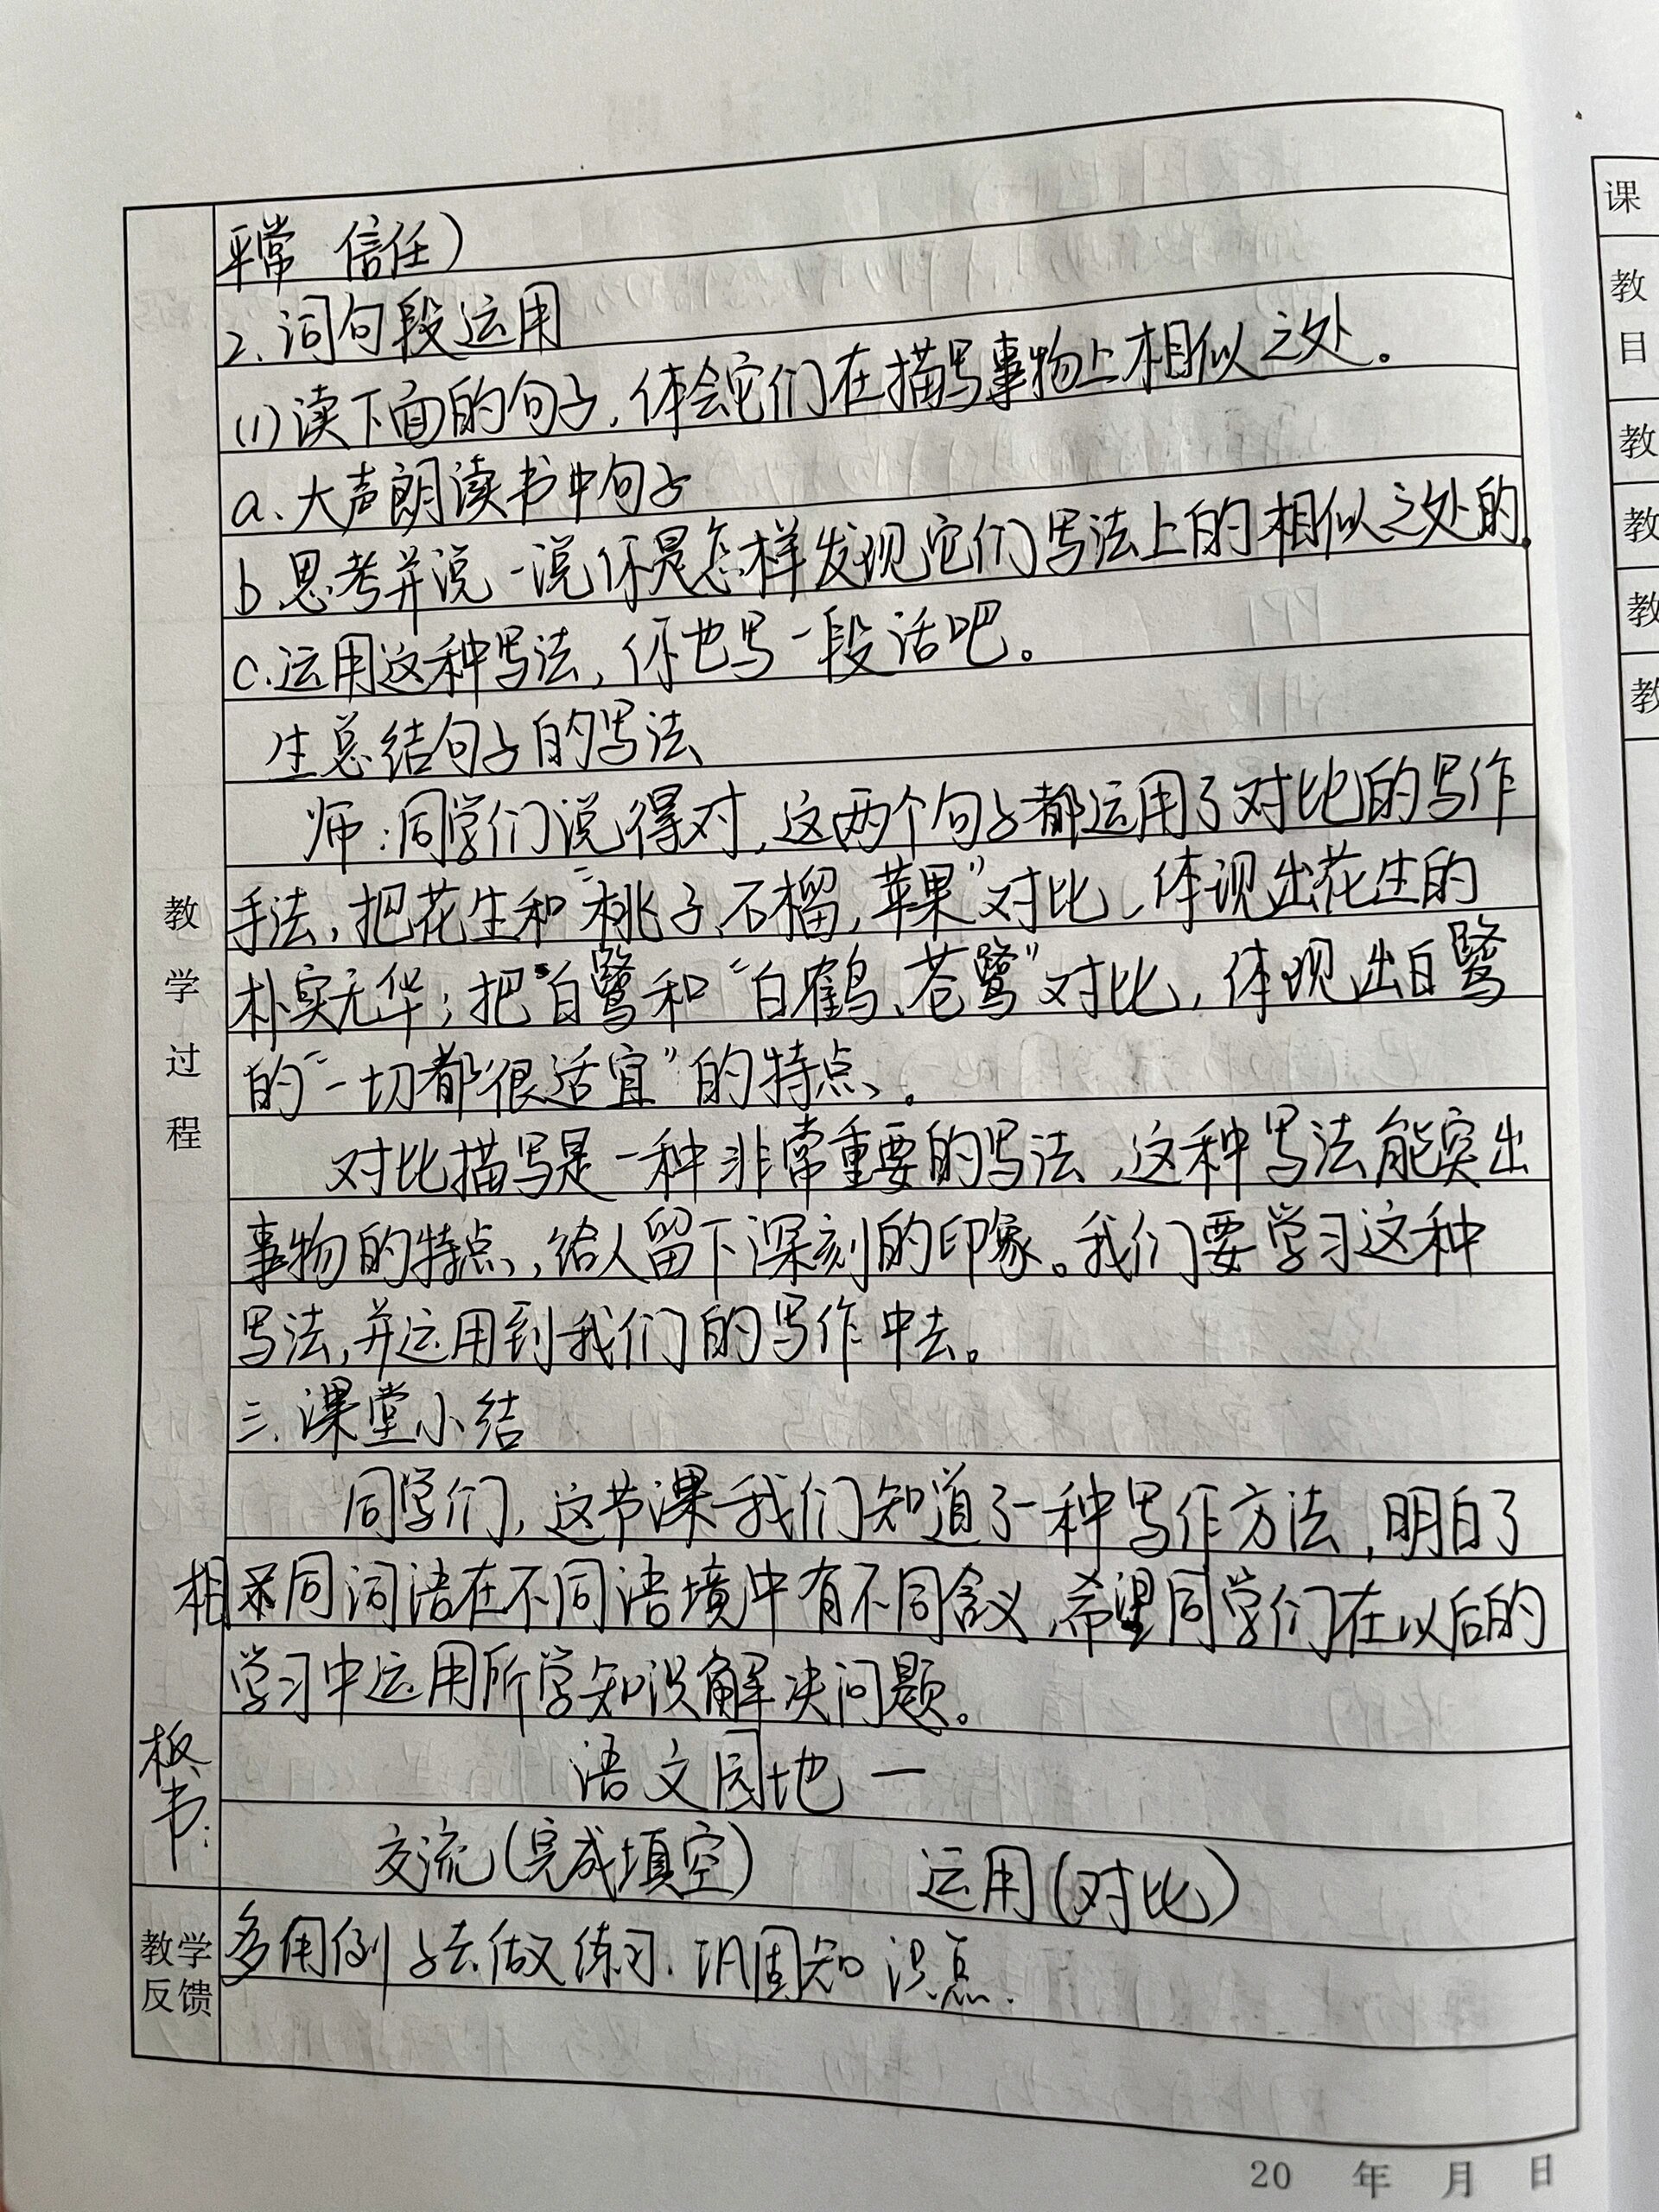 平常 信任）
2.词句段运用
(1)读下面的句子,体会它们在描写事物上相似之处。
a.大声朗读书中句子
b.思考并说一说你是怎样发现它们写法上的相似之处的.
c.运用这种写法,你也写一段话吧。
生总结句子的写法
师:同学们说得对,这两个句子都运用了对比的写作
手法,把花生和“桃子、石榴,苹果”对比,体现出花生的
朴实无华;把“白鹭和“白鹤、苍鹭”对比,体现出白鹭
的“一切都很适宜”的特点。
对比描写是一种非常重要的写法,这种写法能突出
事物的特点,给人留下深刻的印象。我们要学习这种
写法,并运用到我们的写作中去。
三.课堂小结
同学们,这节课我们知道了一种写作方法,明白了
相同词语在不同语境中有不同含义,希望同学们在以后的
学习中运用所学知识解决问题。
语文园地 一
交流(完成填空) 运用(对比)
多用例子去做练习.巩固知识点.
教学过程
板书:
教学
反馈
20 年 月 日
课
教
目
教
教
教
教